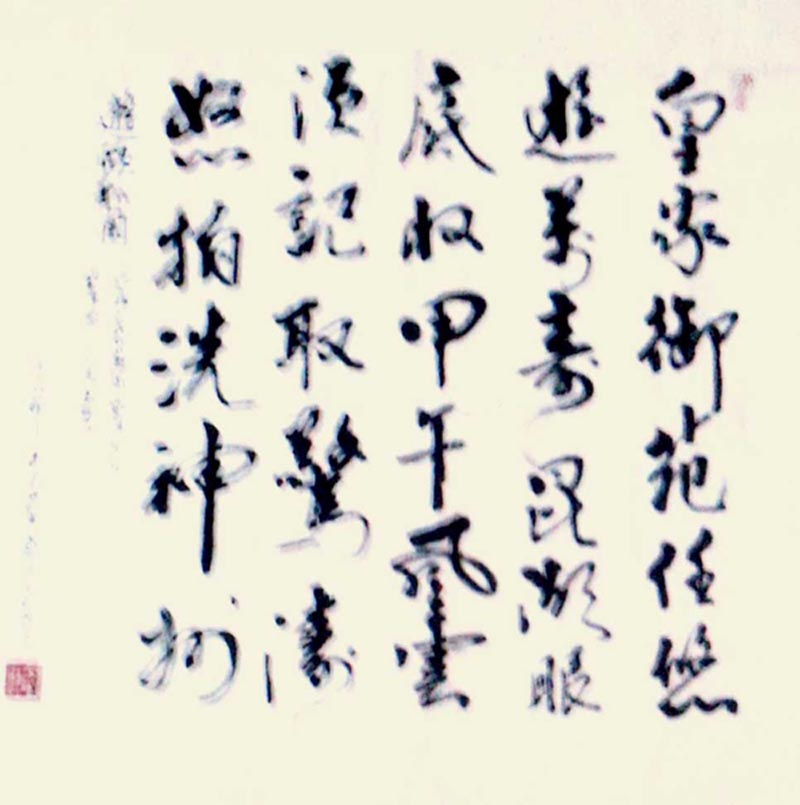 皇家御苑任悠
遊萬壽昆湖眼
底收甲午風雲
須記取驚濤
怒拍洗神州